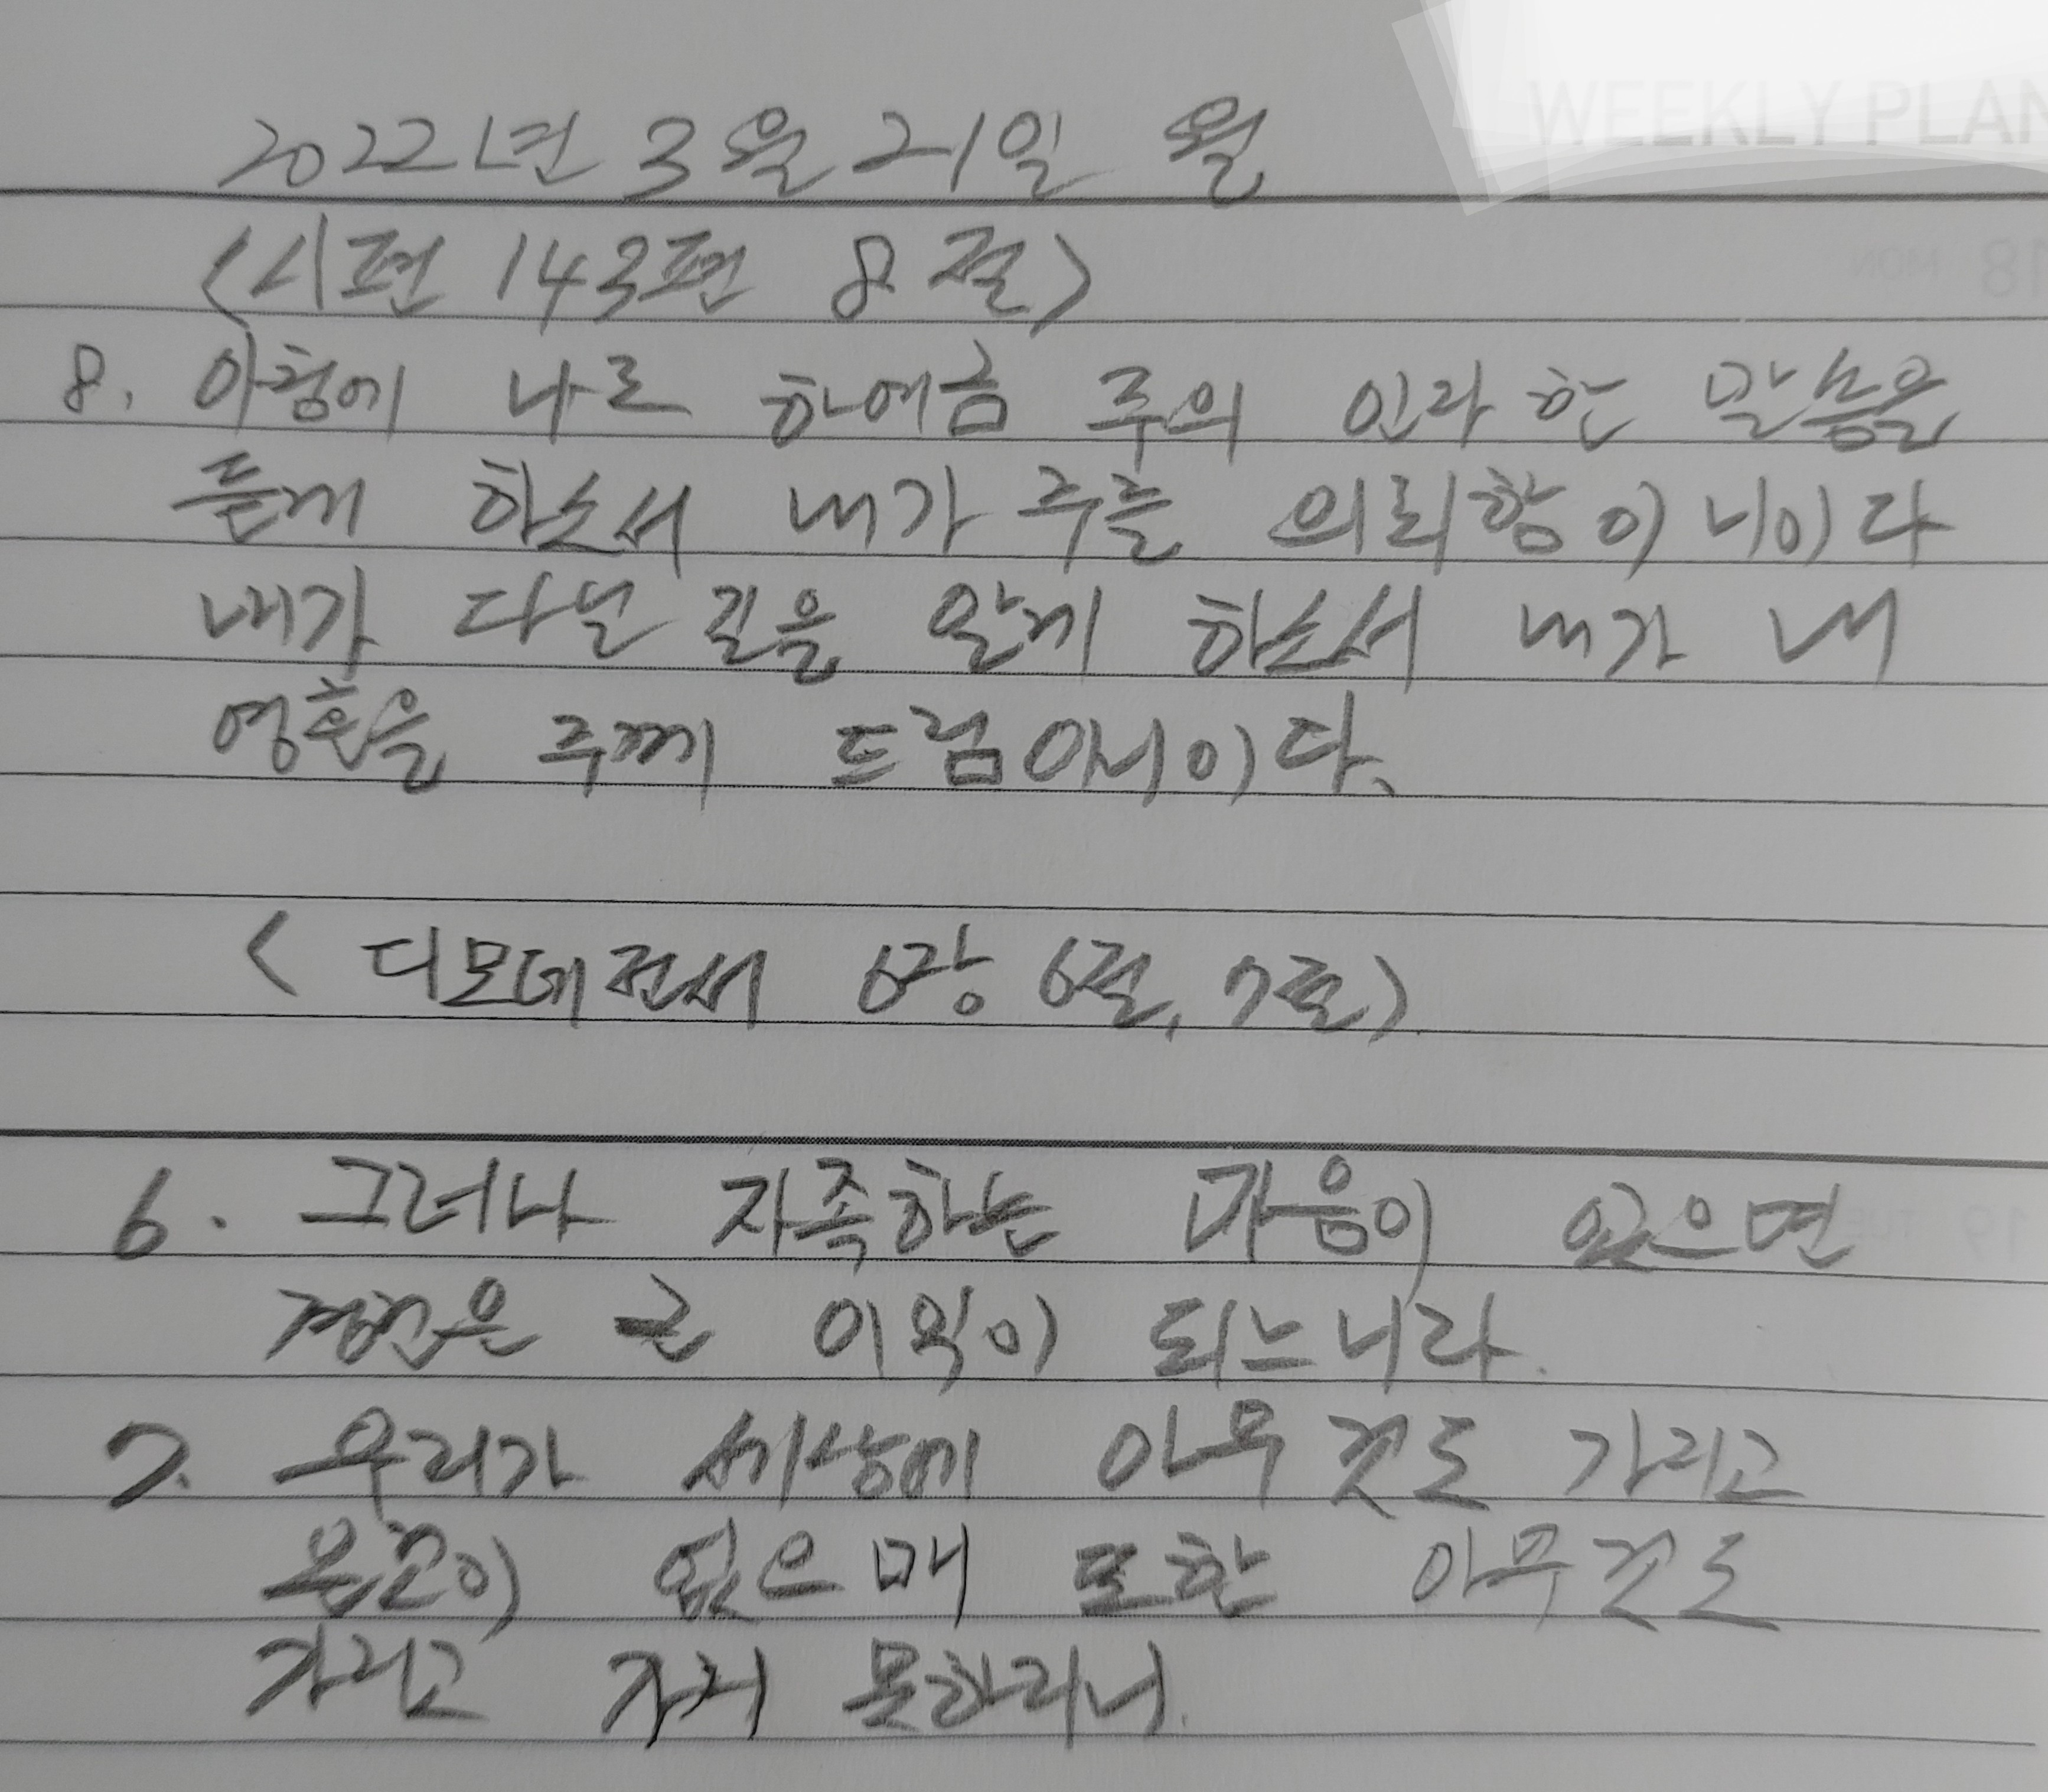 WEEKLY PLAN
2022년 3월 21일 월
<시편 143편 8절>
8. 아침에 나로 하여금 주의 인자한 말씀을
듣게 하소서 내가 주를 의뢰함이니이다
내가 다닐 길을 알게 하소서 내가 내
영혼을 주께 드림이니이다.
< 디모데전서 6장 6절, 7절>
6. 그러나 자족하는 마음이 있으면
경건은 큰 이익이 되느니라.
7. 우리가 세상에 아무 것도 가지고
온것이 없으매 또한 아무것도
가지고 가지 못하리니.